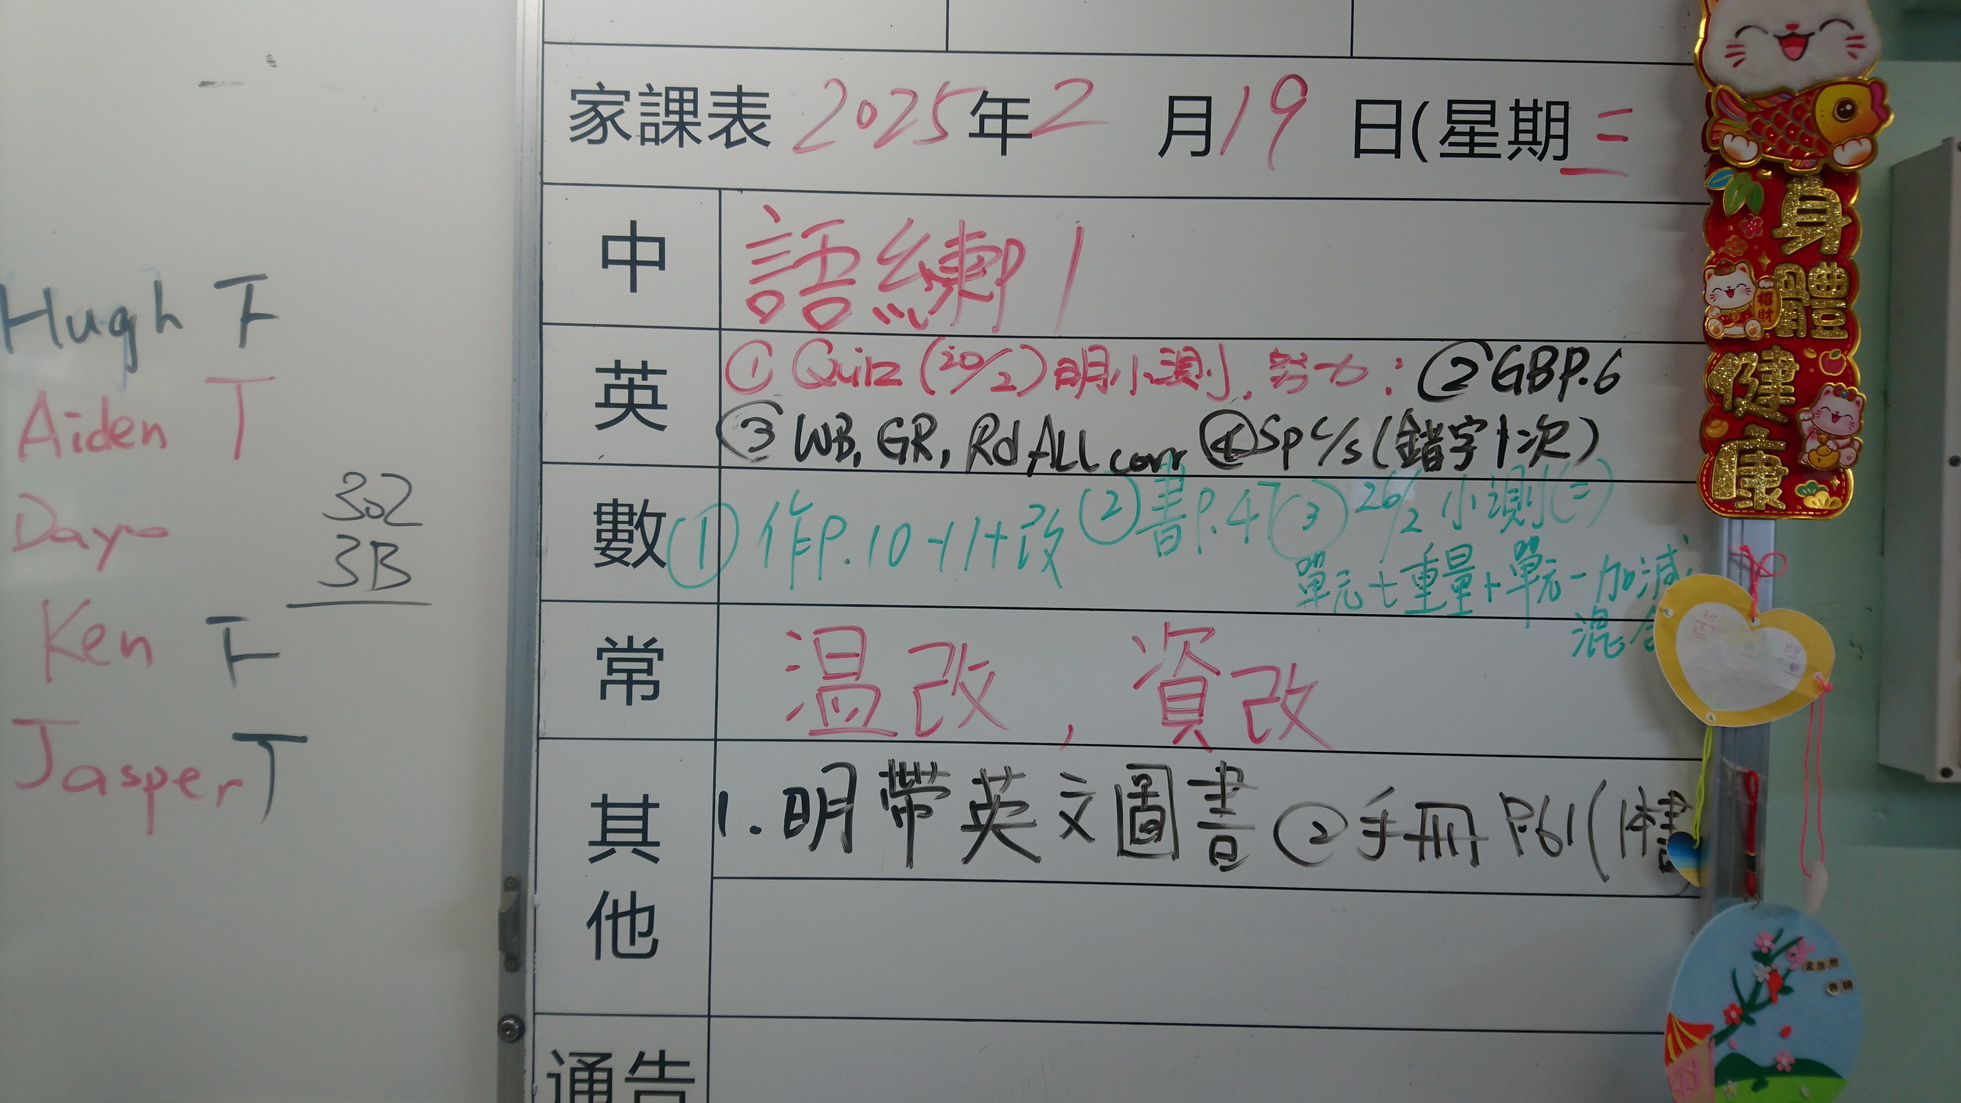 Hugh F
Aiden T
Ken F
Jasper T
302
3B
家課表 2025年2月19日(星期三
中 語練P1
英 ① Quiz (20/2) 明小測, 努力! ② GBP.6
③ WB, GR, Rd ALL corr ④ Sp c/s (錯字1次)
數 ① 作P.10-11+改 ② 書P.47 ③ 26/2 小測(二)
單元七重量+單元一加減
混合
常 温改, 資改
其他 1. 明帶英文圖書 ② 手冊 P.61 (
通告
身體健康
招財